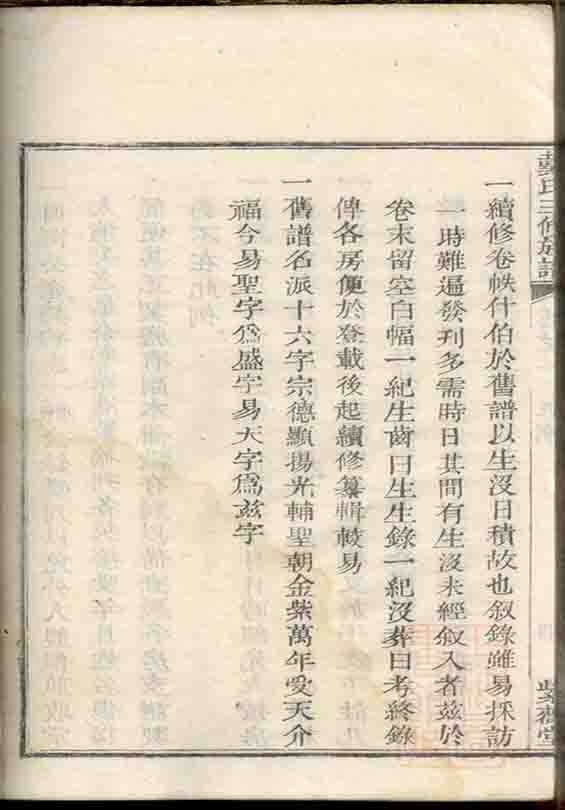 戴氏三修族譜
一續修卷帙什伯於舊譜以生沒日積故也叙錄雖易採訪
一時難遍發刊多需時日其間有生沒未經叙入者茲於
卷末留空白幅一紀生齒曰生生錄一紀沒葬曰考終錄
俾各房便於登載後起續修纂輯較易
一舊譜名派十六字宗德顯揚光輔聖朝金紫萬年受天介
福今易聖字爲盛字易天字爲茲字